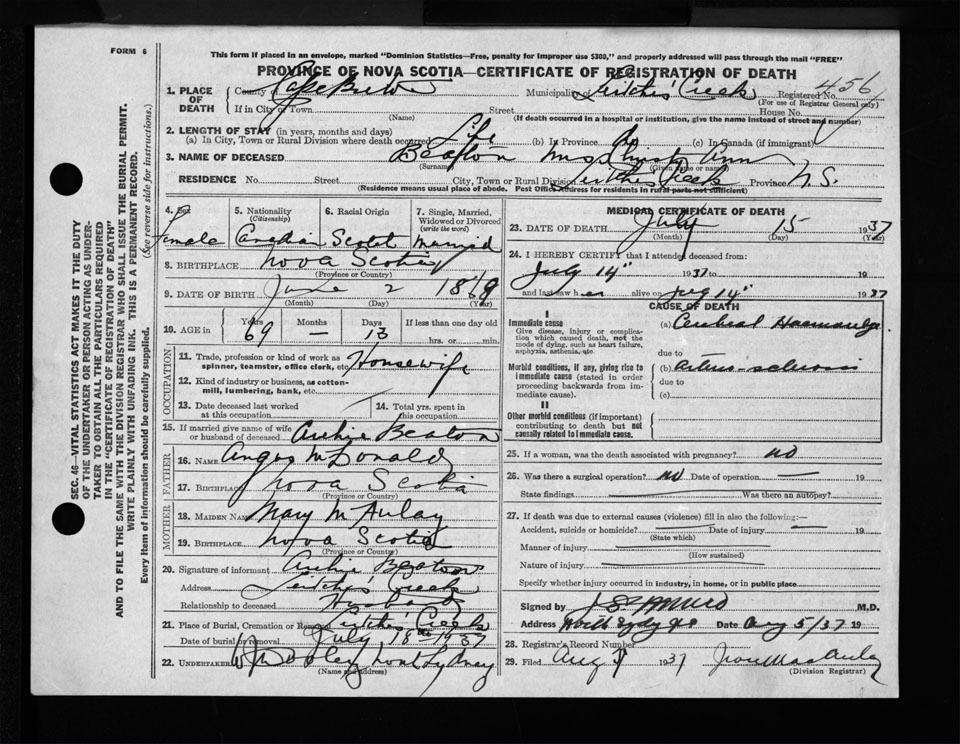 FORM 6
This form if placed in an envelope, marked "Dominion Statistics—Free, penalty for improper use $300," and properly addressed will pass through the mail "FREE"
PROVINCE OF NOVA SCOTIA—CERTIFICATE OF REGISTRATION OF DEATH
1. PLACE OF DEATH County of Cape Breton Municipality of Leitches Creek Registered No. 456
(For use of Registrar General only)
If in City or Town Street House No.
(Name) (If death occurred in a hospital or institution, give the name instead of street and number)
2. LENGTH OF STAY (in years, months and days)
(a) In City, Town or Rural Division where death occurred Life (b) In Province (c) In Canada (if immigrant)
3. NAME OF DECEASED Beaton Mrs Christy Ann
(Surname) (Given name or name)
RESIDENCE No. Street City, Town or Rural Division Leitches Creek Province N.S.
(Residence means usual place of abode. Post Office Address for residents in rural parts not sufficient)
4. Sex Female
5. Nationality (Citizenship) Canadian
6. Racial Origin Scotch
7. Single, Married, Widowed or Divorced (write the word) Married
8. BIRTHPLACE Nova Scotia
(Province or Country)
9. DATE OF BIRTH June 2 1868
(Month) (Day) (Year)
10. AGE in Years 69 Months — Days 13 If less than one day old hrs. or min.
OCCUPATION
11. Trade, profession or kind of work as spinner, teamster, office clerk, etc. Housewife
12. Kind of industry or business, as cotton-mill, lumbering, bank, etc.
13. Date deceased last worked at this occupation
14. Total yrs. spent in this occupation
15. If married give name of wife or husband of deceased Archie Beaton
FATHER
16. NAME Angus McDonald
17. BIRTHPLACE Nova Scotia
(Province or Country)
MOTHER
18. MAIDEN NAME Mary McAulay
19. BIRTHPLACE Nova Scotia
(Province or Country)
20. Signature of informant Archie Beaton
Address Leitches Creek
Relationship to deceased Husband
21. Place of Burial, Cremation or Removal Leitches Creek
Date of burial or removal July 18th 1937
22. UNDERTAKER Dooley North Sydney
(Name and Address)
MEDICAL CERTIFICATE OF DEATH
23. DATE OF DEATH July 15 1937
(Month) (Day) (Year)
24. I HEREBY CERTIFY that I attended deceased from:
July 14" 1937 to 19
and last saw her alive on July 14" 1937
CAUSE OF DEATH
I
Immediate cause
Give disease, injury or complication which caused death, not the mode of dying, such as heart failure, asphyxia, asthenia, etc.
(a) Cerebral Haemorrhage
due to
Morbid conditions, if any, giving rise to immediate cause (stated in order proceeding backwards from immediate cause).
(b) Arterio-sclerosis
due to
(c)
II
Other morbid conditions (if important) contributing to death but not causally related to immediate cause.
25. If a woman, was the death associated with pregnancy? no
26. Was there a surgical operation? no Date of operation — 19
State findings Was there an autopsy?
27. If death was due to external causes (violence) fill in also the following:—
Accident, suicide or homicide? Date of injury 19
(State which)
Manner of injury
(How sustained)
Nature of injury
Specify whether injury occurred in industry, in home, or in public place
Signed by M.D.
Address North Sydney Date Aug 5/37 19
28. Registrar's Record Number
29. Filed Aug 1937 MacAulay
(Division Registrar)
SEC. 46—VITAL STATISTICS ACT MAKES IT THE DUTY
OF THE UNDERTAKER OR PERSON ACTING AS UNDER-
TAKER TO OBTAIN ALL THE PARTICULARS REQUIRED
IN THE "CERTIFICATE OF REGISTRATION OF DEATH"
AND TO FILE THE SAME WITH THE DIVISION REGISTRAR WHO SHALL ISSUE THE BURIAL PERMIT.
WRITE PLAINLY WITH UNFADING INK. THIS IS A PERMANENT RECORD.
Every item of information should be carefully supplied. (See reverse side for instructions.)